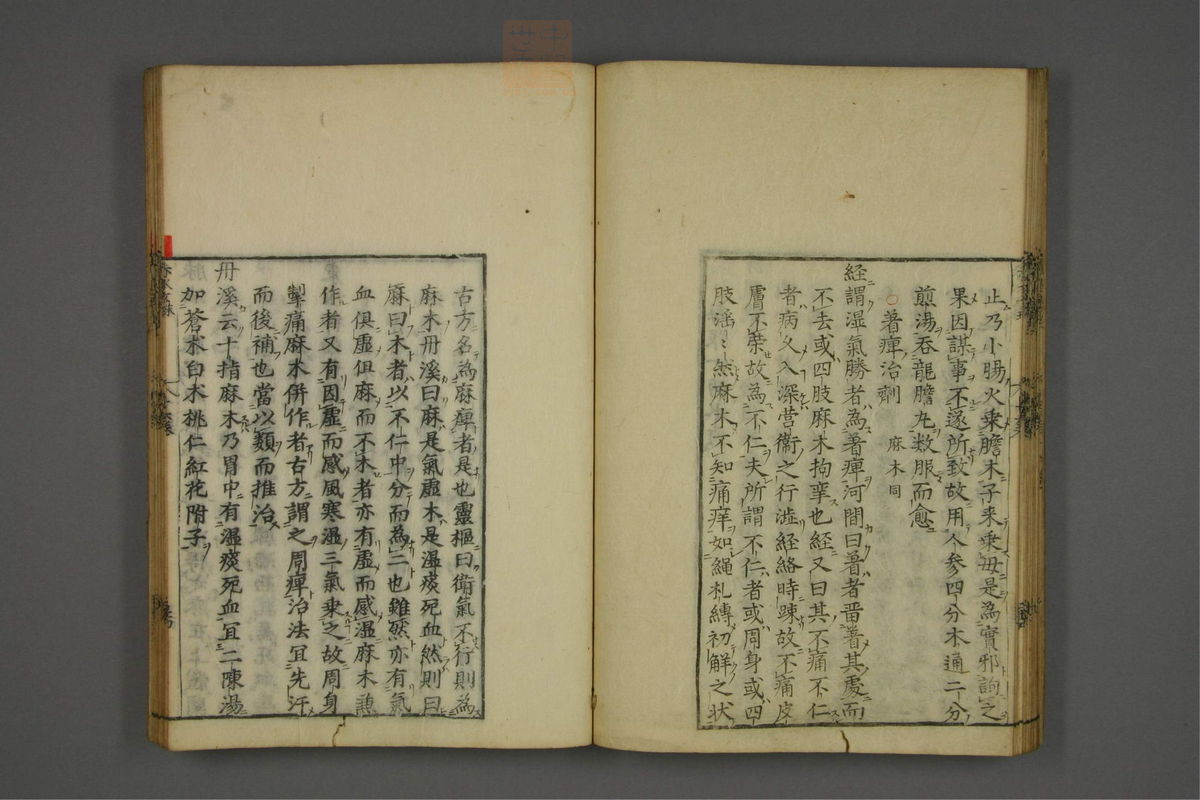 止乃小腸火乗膽木子来乗母是為實邪詢之
果因謀事不遂所致故用人参四分木通二分
煎湯吞龍膽丸数服而愈
○著痺治劑 麻木同
経謂湿氣勝者為著痺河間曰著者畱著其處而
不去或四肢麻木拘挛也経又曰其不痛不仁
者病久入深営衛之行澁経絡時踈故不痛皮
膚不榮故為不仁夫所謂不仁者或周身或四
肢淫々然麻木不知痛痒如繩札縛初解之状
古方名為麻痺者是也靈樞曰衛氣不行則為
麻木丹溪曰麻是氣虚木是湿痰死血然則曰
麻曰木者以不仁中分而為二也雖然亦有氣
血俱虚但麻而不木者亦有虚而感湿麻木兼
作者又有因虚而感風寒湿三氣乗之故周身
掣痛麻木併作者古方謂之周痺治法宜先汗
而後補也當以類而推治
丹溪云十指麻木乃胃中有湿痰死血宜二陳湯
加蒼朮白朮桃仁紅花附子